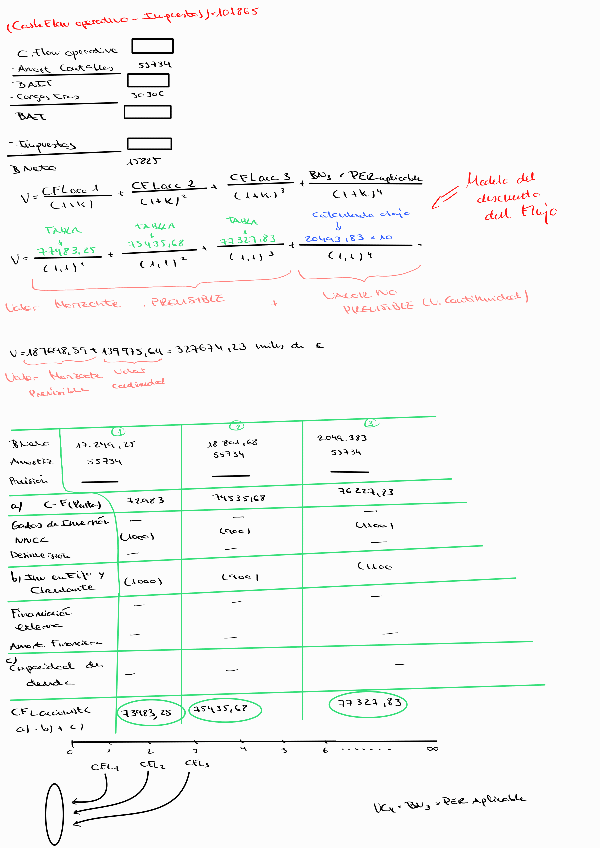 (Cash Flow operativo - Impuestos) = 101865
C. Flow operativo
- Amort Contables 55734
BAIT
- Cargas Fras 30.306
BAI
- Impuestos
B Neto 15825
V = CFLacc 1 / (1+K) + CFLacc 2 / (1+K)² + CFLacc 3 / (1+K)³ + BN₃ · PER aplicable / (1+K)⁴
Modelo del descuento del Flujo
TABLA TABLA TABLA Calculando abajo
V = 77483,25 / (1,1)¹ + 75435,68 / (1,1)² + 77327,83 / (1,1)³ + 20493,83 × 10 / (1,1)⁴ =
Valor Horizonte PREVISIBLE + VALOR NO
PREVISIBLE (V. Continuidad)
V = 187698,59 + 139975,64 = 327674,23 miles de €
Valor Horizonte Valor
Previsible continuidad
① ② ③
B Neto 17.249,25 18.801,68 2049.383
Amortiz 55734 55734 55734
Provisión
a) C-F (Parte) 72983 74535,68 76227,83
Gastos de Inversión — — —
NNCC (1000) (900) (1100)
Desinversión — —
b) Inv en Fijo y (1000) (900) (1100
Circulante
Financiación — — —
externa
Amort. Financiera — — —
c) Capacidad de — — —
deuda
CFL accionista 73983,25 75435,68 77327,83
a) - b) + c)
0 1 2 3 4 5 6 ........ ∞
CFL₁ CFL₂ CFL₃
VC₄ = BN₃ × PER Aplicable